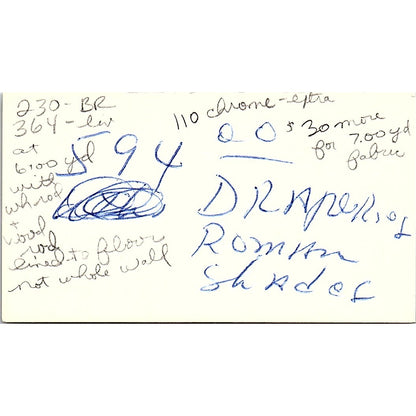 230 - BR
364 - livr
at
6.00 yd
with
wh rod
+
wood
rod
lined to floor
not whole wall
110 chrome - extra
$30 more
for 7.00 yd
fabric
594 00
DRAPERies
ROMAN
ShAdes